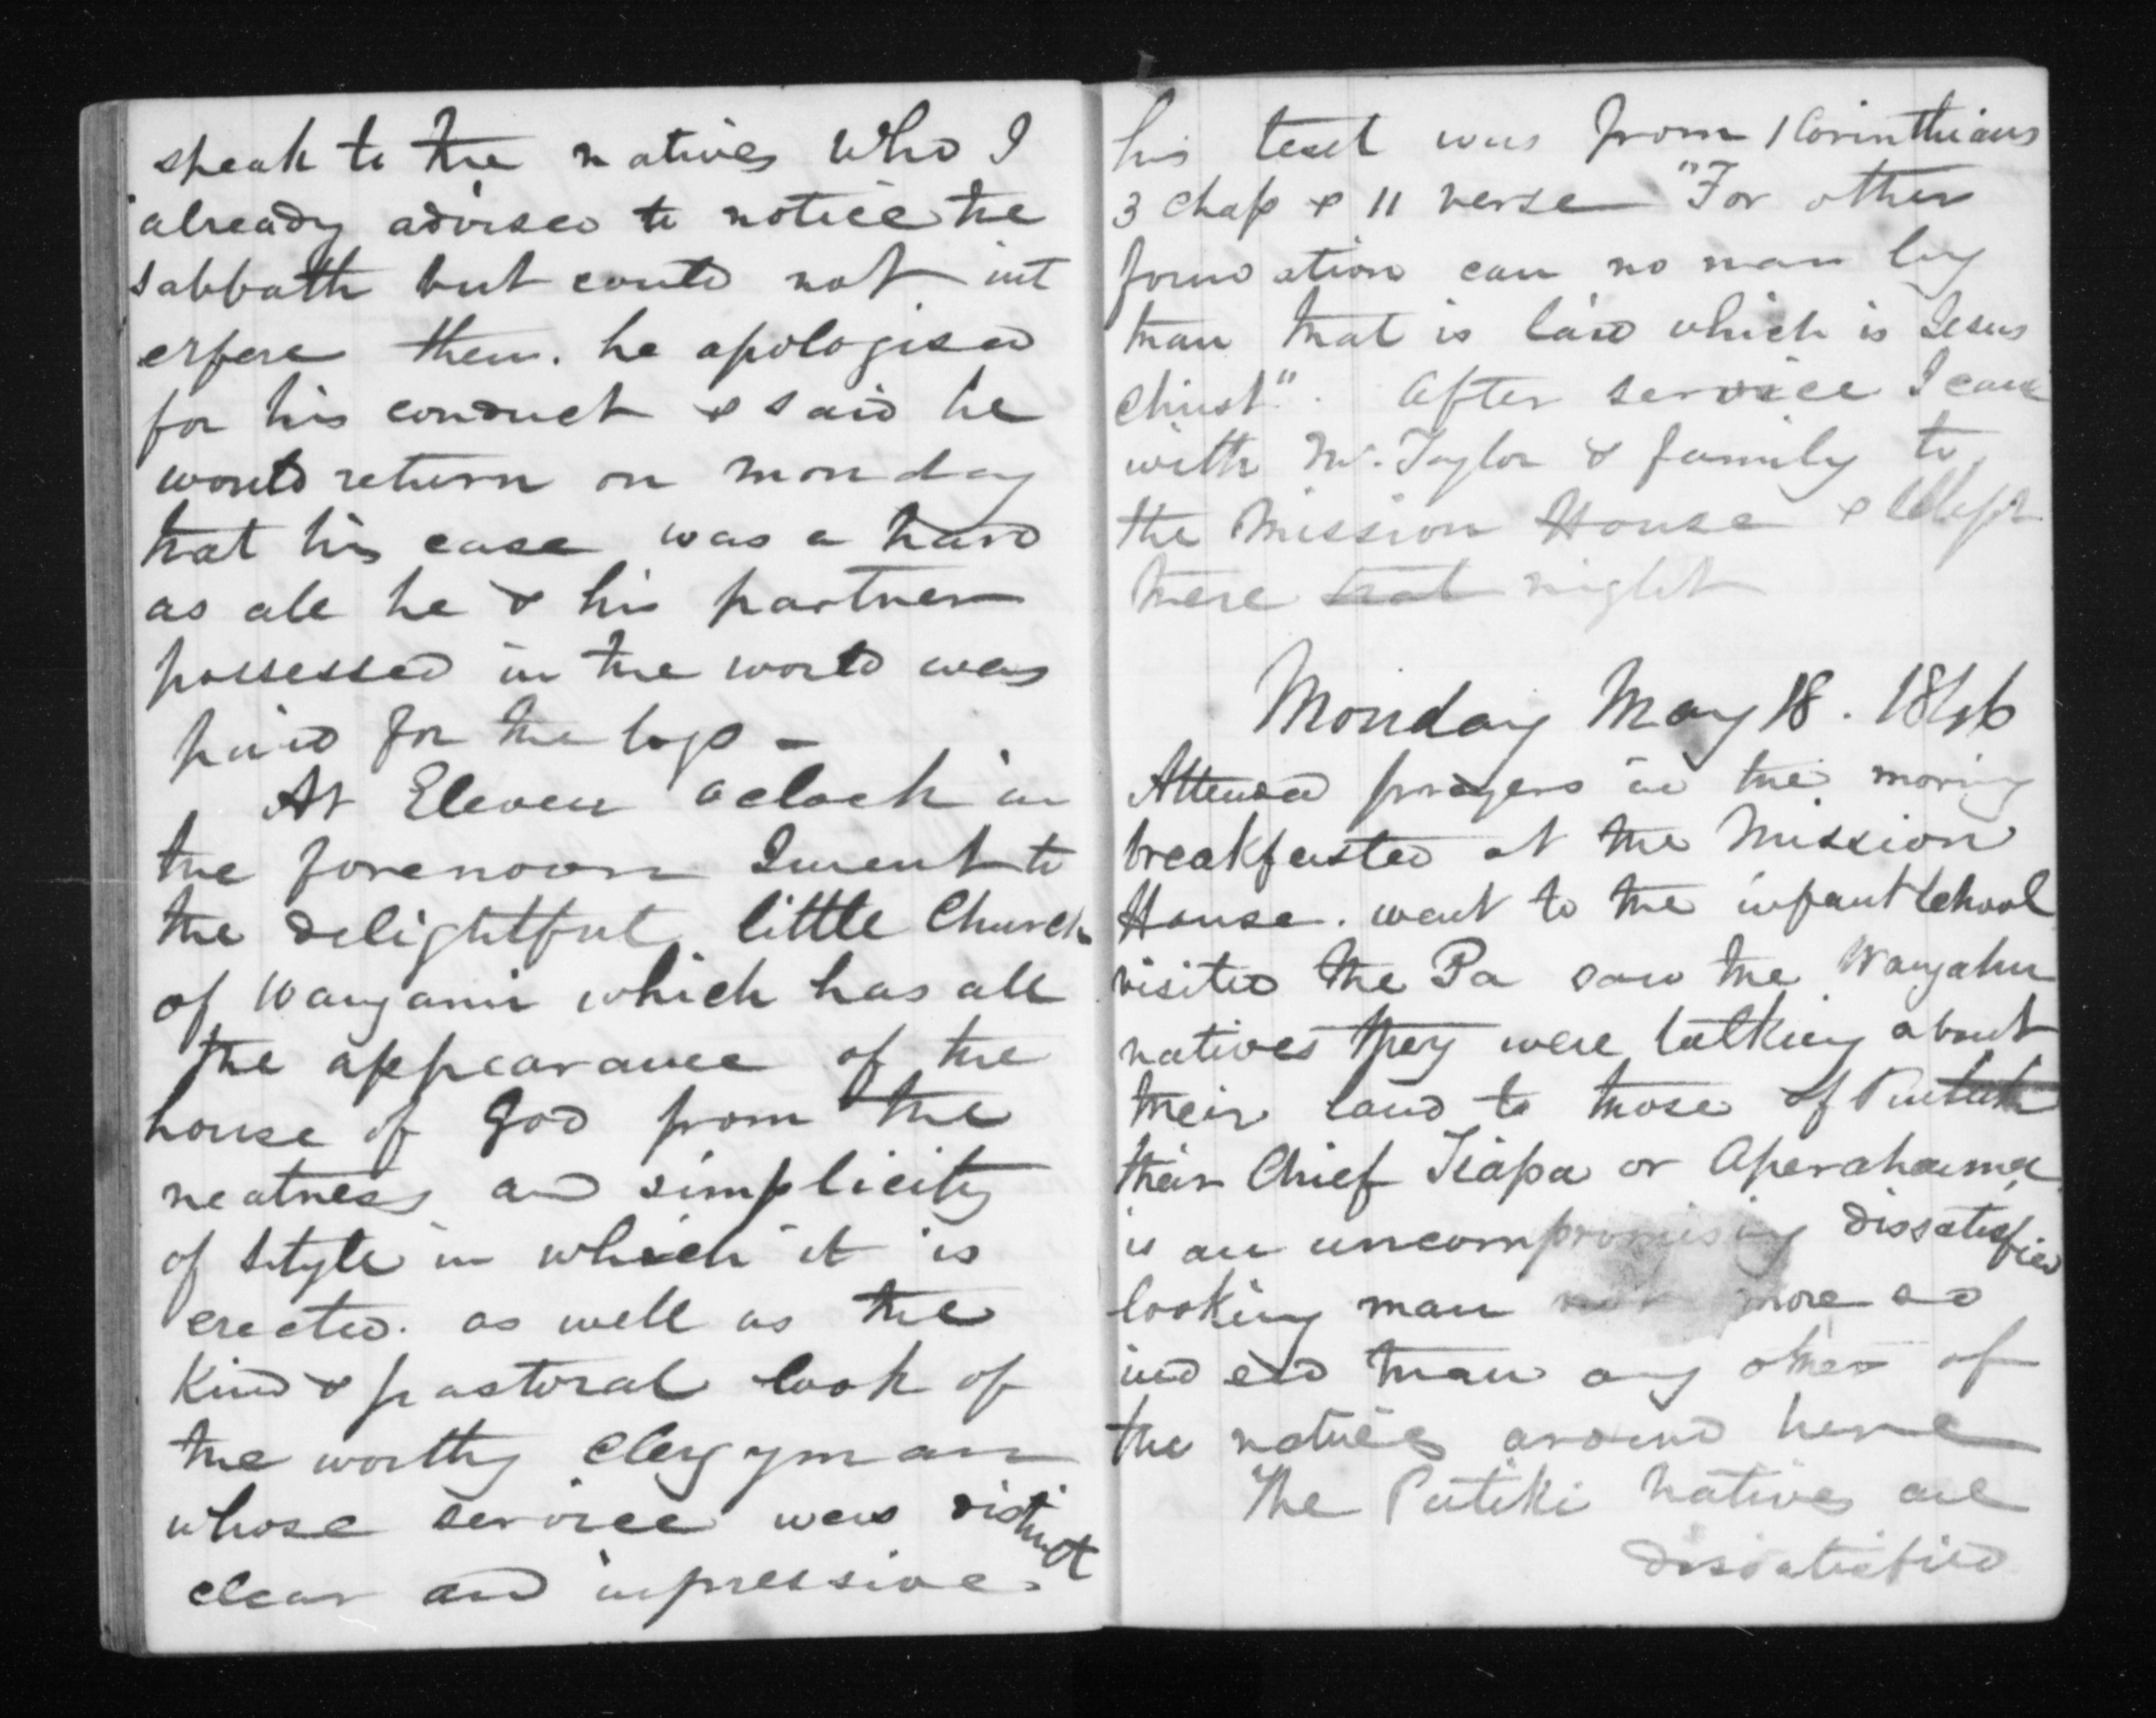 speak to the natives who I
already advised to notice the
sabbath but could not int
erfere them. he apologised
for his conduct & said he
would return on Monday
that his case was a hard
as all he & his partner
possessed in the world was
paid for the logs -
At Eleven oclock in
the forenoon I went to
the delightful little Church
of Wanganui which has all
the appearance of the
house of God from the
neatness and simplicity
of style in which it is
erected. as well as the
Kind & pastoral look of
the worthy Clergyman
whose service was distinct
clear and impressive.
his text was from 1 Corinthians
3 chap & 11 verse "For other
foundation can no man lay
than that is laid which is Jesus
Christ". After service I came
with Mr. Taylor & family to
the Mission House & slept
there that night
Monday May 18. 1846
Attended prayers in the morning
breakfasted at the Mission
House. went to the infant School
visited the Pa saw the Wangahu
natives they were talking about
their land to those of
their Chief Isapa or Aperahama
is an uncompromising dissatisfied
looking man more so
indeed than any other of
the natives around here
The Putiki natives are
dissatisfied